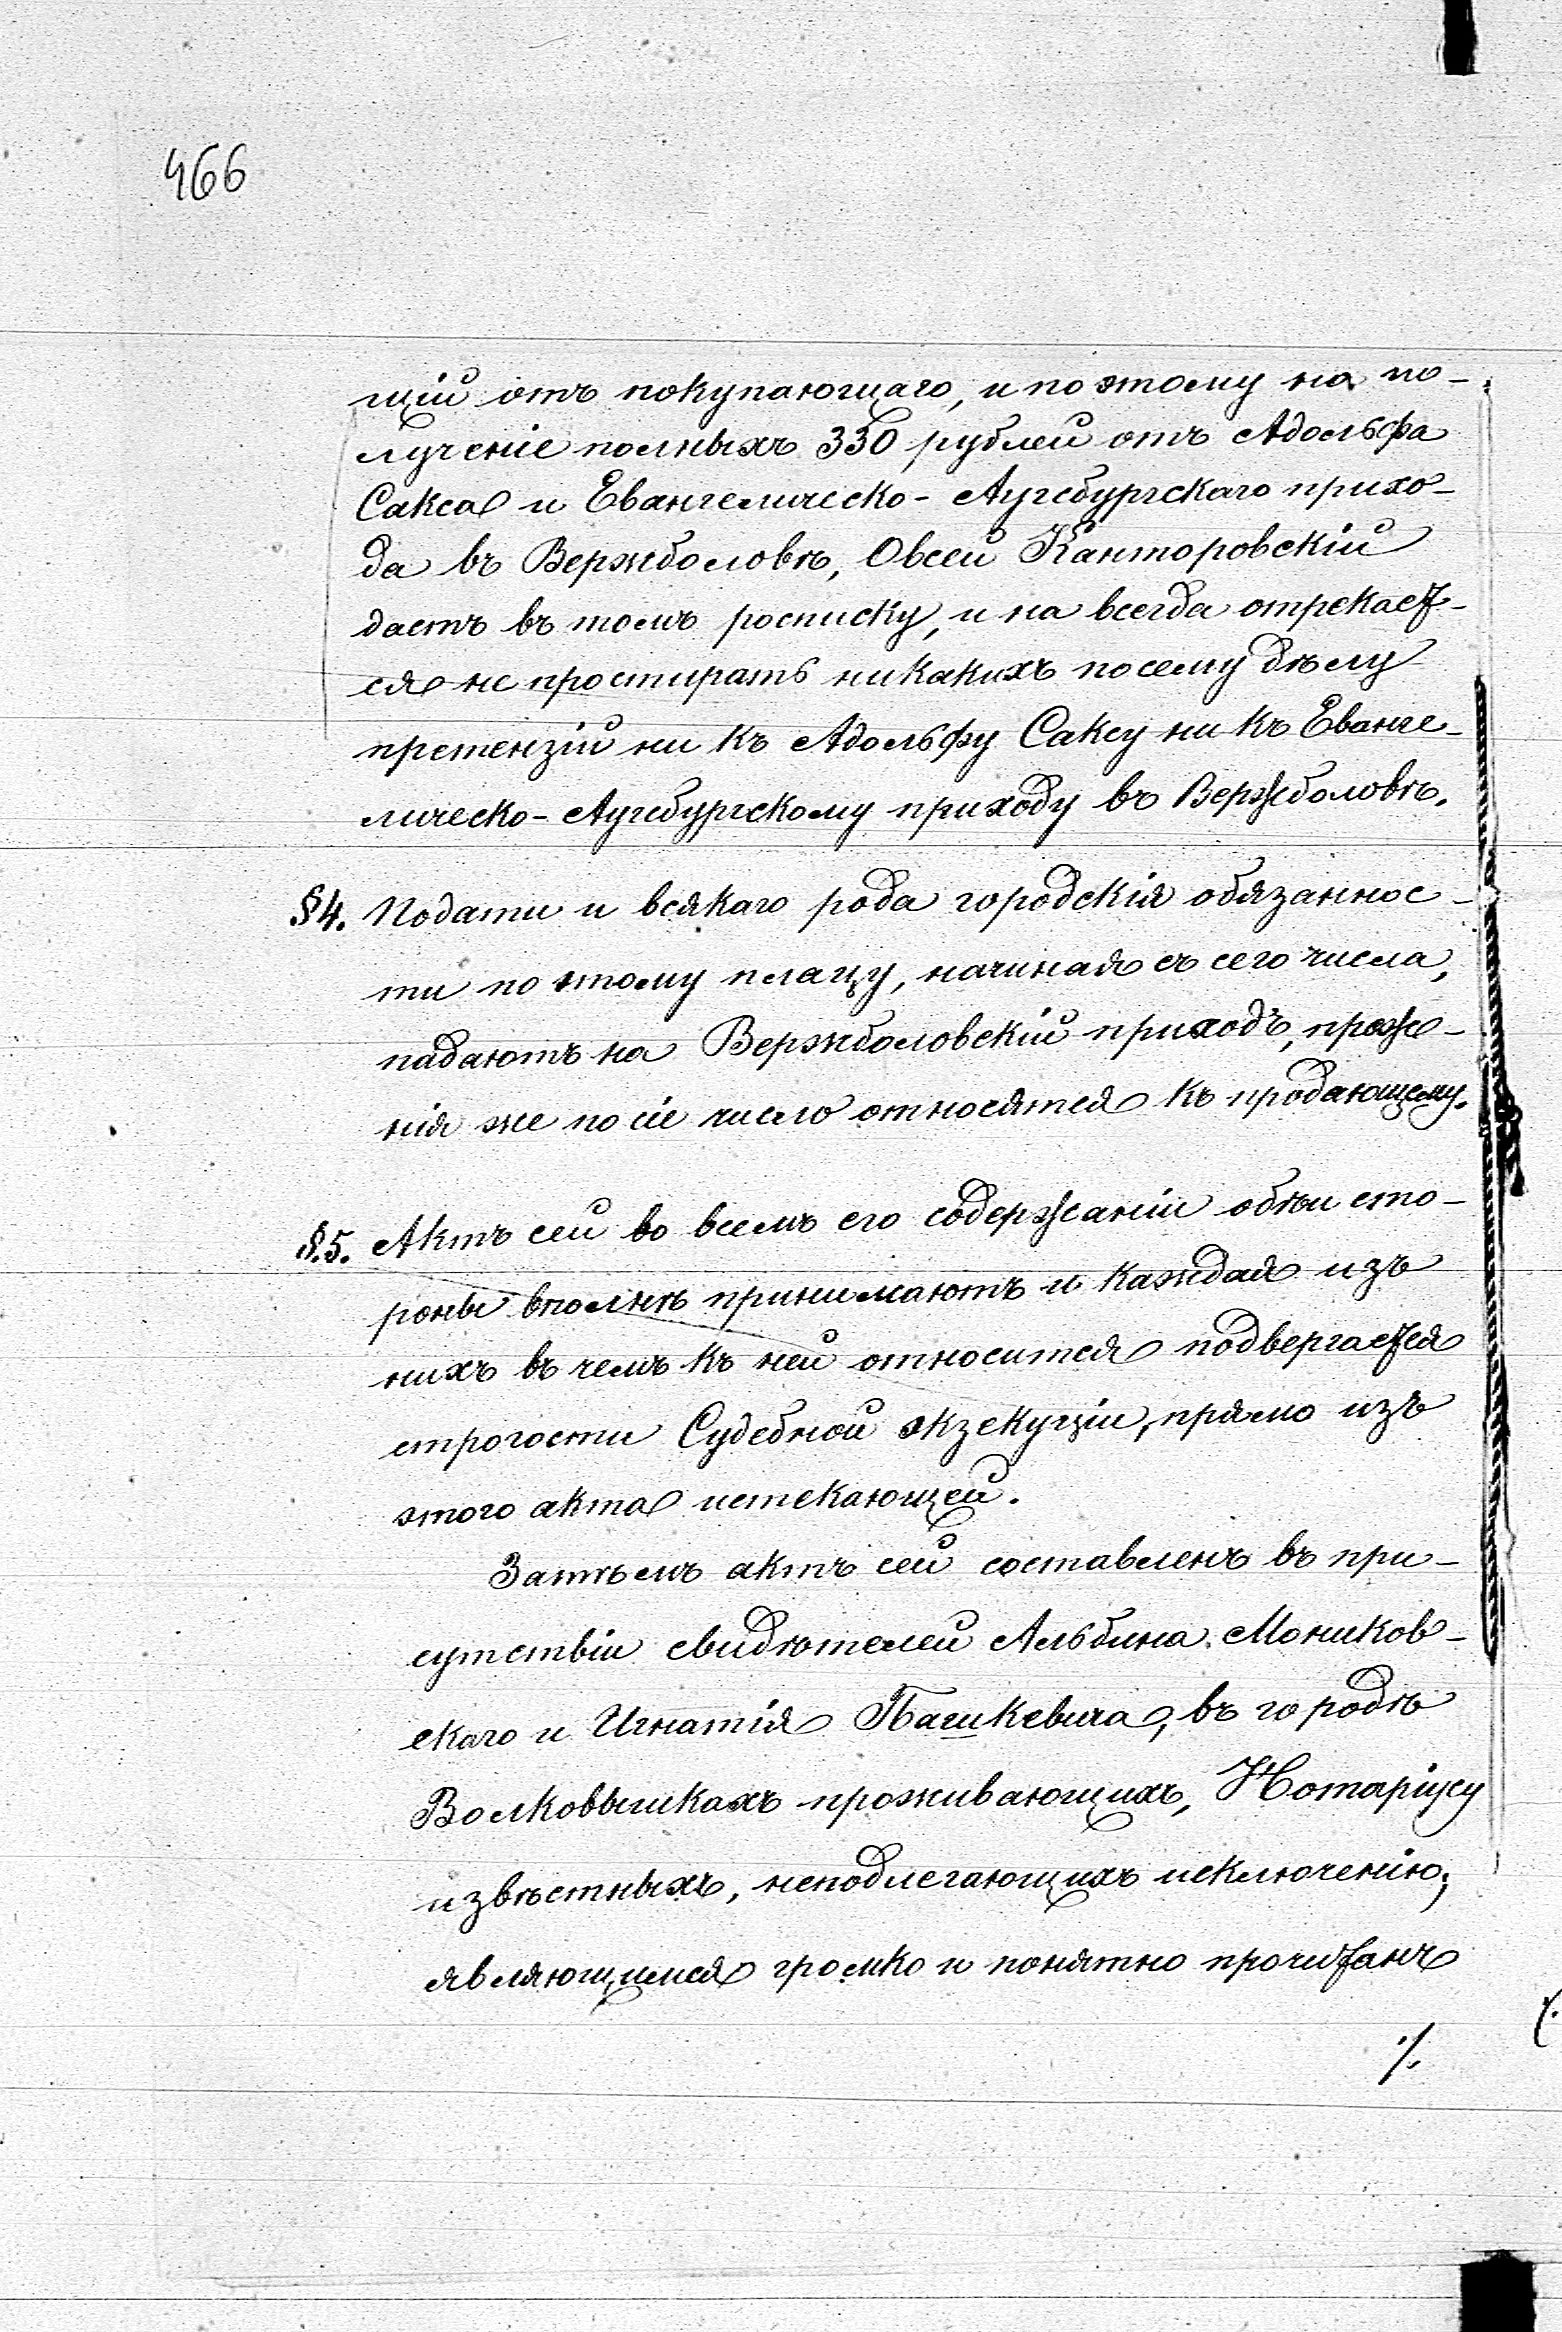 466
щій отъ покупающаго, и поэтому на по-
лученіе полныхъ 330 рублей отъ Адольфа
Сакса и Евангелическо-Аугсбургскаго прихо-
да въ Вержболовѣ, Овсей Канторовскій
даетъ въ томъ росписку, и на всегда отрекает-
ся не простирать никакихъ по сему дѣлу
претензій ни къ Адольфу Саксу ни къ Еванге-
лическо-Аугсбургскому приходу въ Вержболовѣ.
§4. Подати и всякаго рода городскія обязаннос-
ти по этому плацу, начиная съ сего числа,
падаютъ на Вержболовскій приходъ, преж-
нія же по сіе число относятся къ продающему.
§.5. Актъ сей во всемъ его содержаніи обѣи сто-
роны вполнѣ принимаютъ и каждая изъ
нихъ въ чемъ къ ней относится подвергается
строгости Судебной экзекуціи, прямо изъ
этого акта истекающей.
Затѣмъ актъ сей составленъ въ при-
сутствіи свидѣтелей Альбина Моников-
скаго и Игнатія Пашкевича, въ городѣ
Волковышкахъ проживающихъ, Нотаріусу
извѣстныхъ, неподлегающихъ исключенію,
являющимся громко и понятно прочитанъ
./.